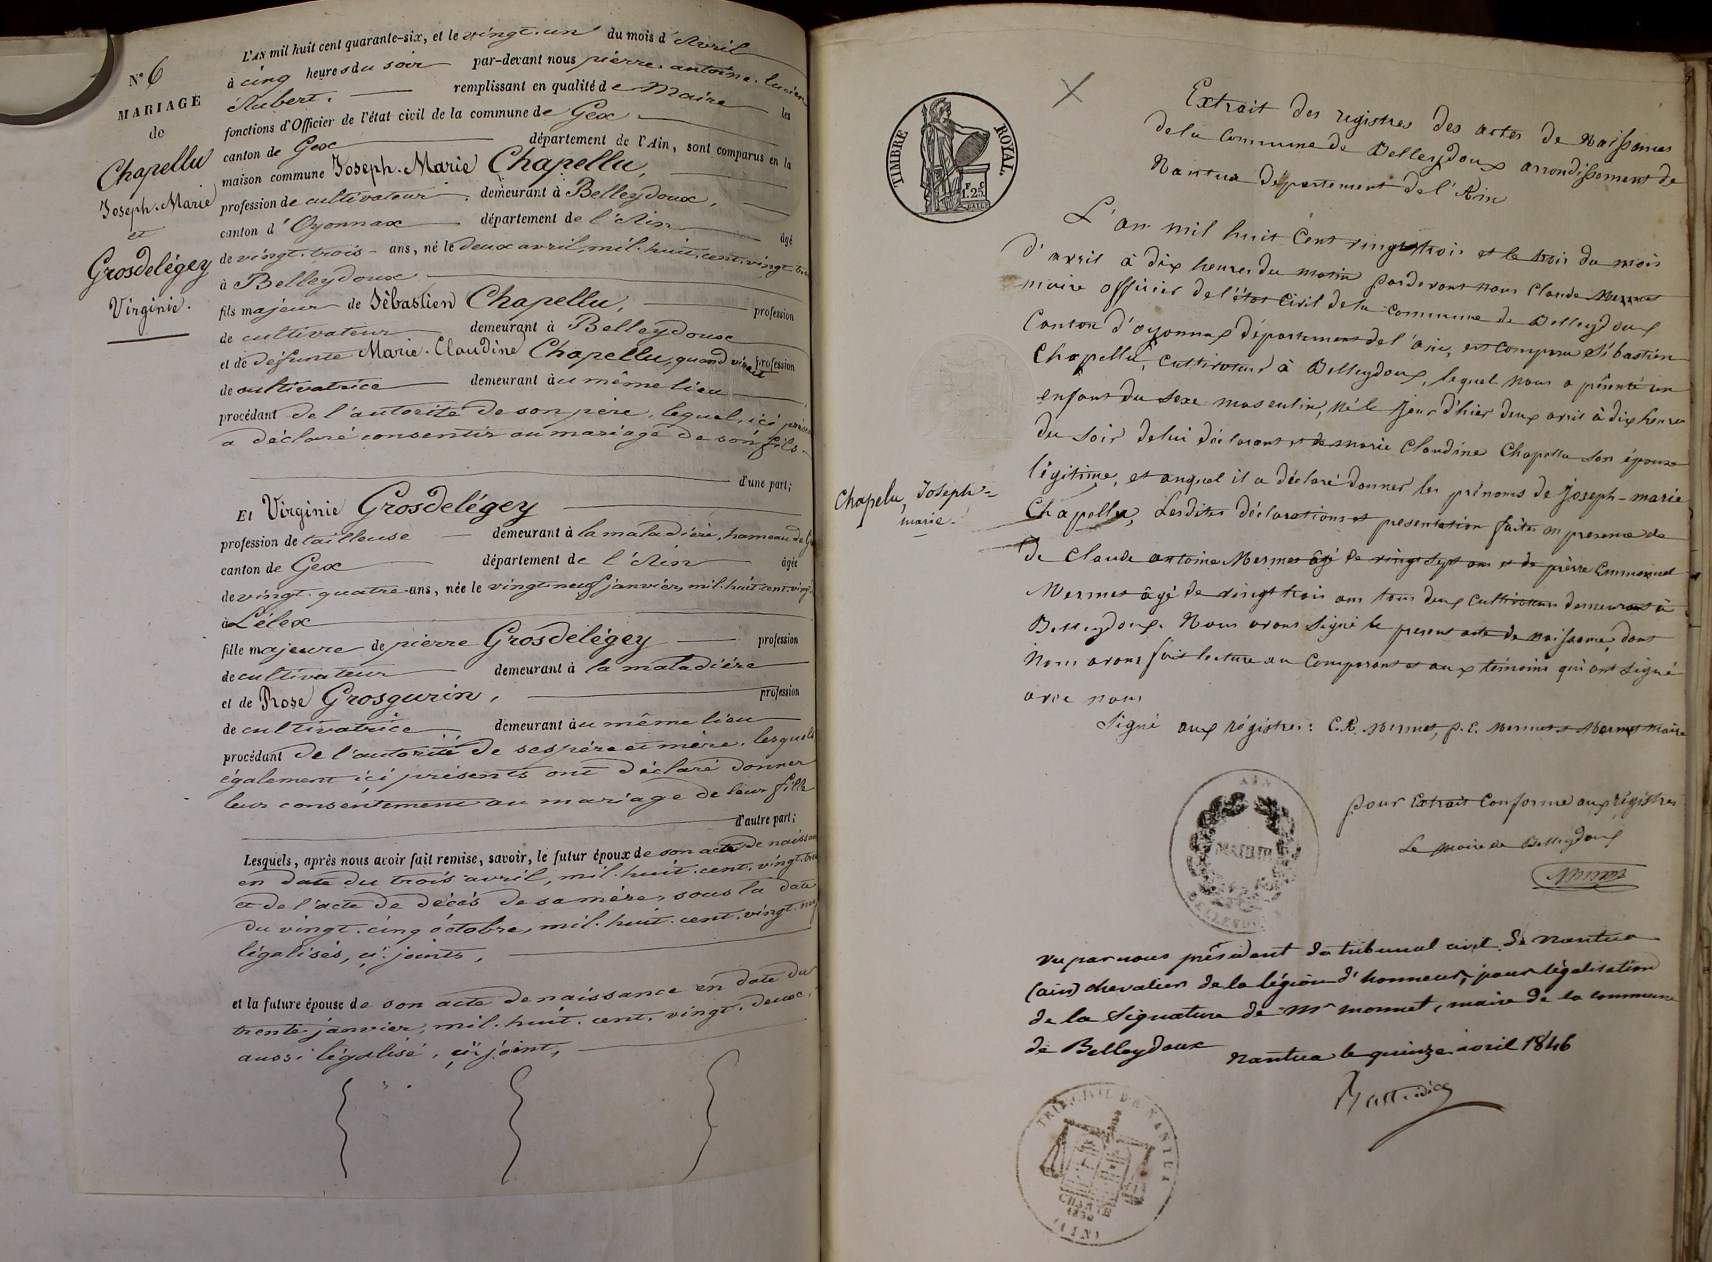 N° 6
MARIAGE
de
Chapellu
Joseph-Marie
et
Grosdelégey
Virginie.
L'AN mil huit cent quarante-six, et le vingt-un du mois d'Avril
à cinq heures du soir par-devant nous pierre-antoine-lucien
Aubert, remplissant en qualité de Maire les
fonctions d'Officier de l'état civil de la commune de Gex
canton de Gex département de l'Ain, sont comparus en la
maison commune Joseph-Marie Chapellu,
profession de cultivateur, demeurant à Belleydoux,
canton d'Oyonnax département de l'Ain âgé
de vingt-trois ans, né le deux avril, mil-huit-cent-vingt-
à Belleydoux
fils majeur de Sébastien Chapellu, profession
de cultivateur demeurant à Belleydoux
et de défunte Marie-Claudine Chapellu, quand vivait profession
de cultivatrice demeurant au même lieu
procédant de l'autorité de son père, lequel, ici
a déclaré consentir au mariage de son fils
d'une part;
Et Virginie Grosdelégey
profession de tailleuse demeurant à la maladière, hameau de
canton de Gex département de l'Ain âgée
de vingt-quatre ans, née le vingt-neuf janvier, mil-huit-cent-vingt-
à Lélex
fille majeure de pierre Grosdelégey profession
de cultivateur demeurant à la maladière
et de Rose Grosgurin, profession
de cultivatrice demeurant au même lieu
procédant de l'autorité de ses père et mère, lesquels
également ici présents ont déclaré donner
leur consentement au mariage de leur fille
d'autre part;
Lesquels, après nous avoir fait remise, savoir, le futur époux de son acte de
en date du trois avril, mil-huit-cent-vingt-
et de l'acte de décès de sa mère, sous la date
du vingt-cinq octobre, mil-huit-cent-vingt-
légalisés, ci-joints,
et la future épouse de son acte de naissance en date du
trente janvier, mil-huit-cent-vingt-deux,
aussi légalisé, ci-joint,
TIMBRE ROYAL
1.F 25.C
Extrait des registres des actes de Naissances
de la Commune de Belleydoux arrondissement de
Nantua Département de l'Ain
Chapelu, Joseph-
marie.
L'an mil huit Cent vingt trois et le trois du mois
d'avril à dix heures du matin pardevant nous Claude Mermet
maire officier de l'état Civil de la Commune de Belleydoux
Canton d'oyonnax département de l'ain, est Comparu Sébastien
Chapellu, cultivateur à Belleydoux, lequel nous a présenté un
enfant du sexe masculin, né le jour d'hier deux avril à dix heures
du soir de lui déclarant et de marie Claudine Chapellu son épouse
légitime, et auquel il a déclaré donner les prénoms de Joseph-marie
Chapellu, Lesdites déclarations et présentation faites en présence de
de Claude antoine Mermet âgé de vingt sept ans et de pierre Emmanuel
Mermet âgé de vingt trois ans tous deux Cultivateurs demeurant à
Belleydoux. Nous avons signé le présent acte de naissance, dont
nous avons fait lecture au Comparant et aux témoins qui ont signé
avec nous
Signé aux régistres: C.A. Mermet, p. E. Mermet et Mermet Maire
pour Extrait Conforme aux régistres
Le Maire de Belleydoux
AIN
MAIRIE
BELLEYDOUX
Vu par nous président du tribunal civil de Nantua
(ain) chevalier de la légion d'honneur, pour légalisation
de la Signature de Mr mermet, maire de la commune
de Belleydoux
Nantua le quinze avril 1846
TRIB. CIVIL DE NANTUA
CHARTE
1830
(AIN)